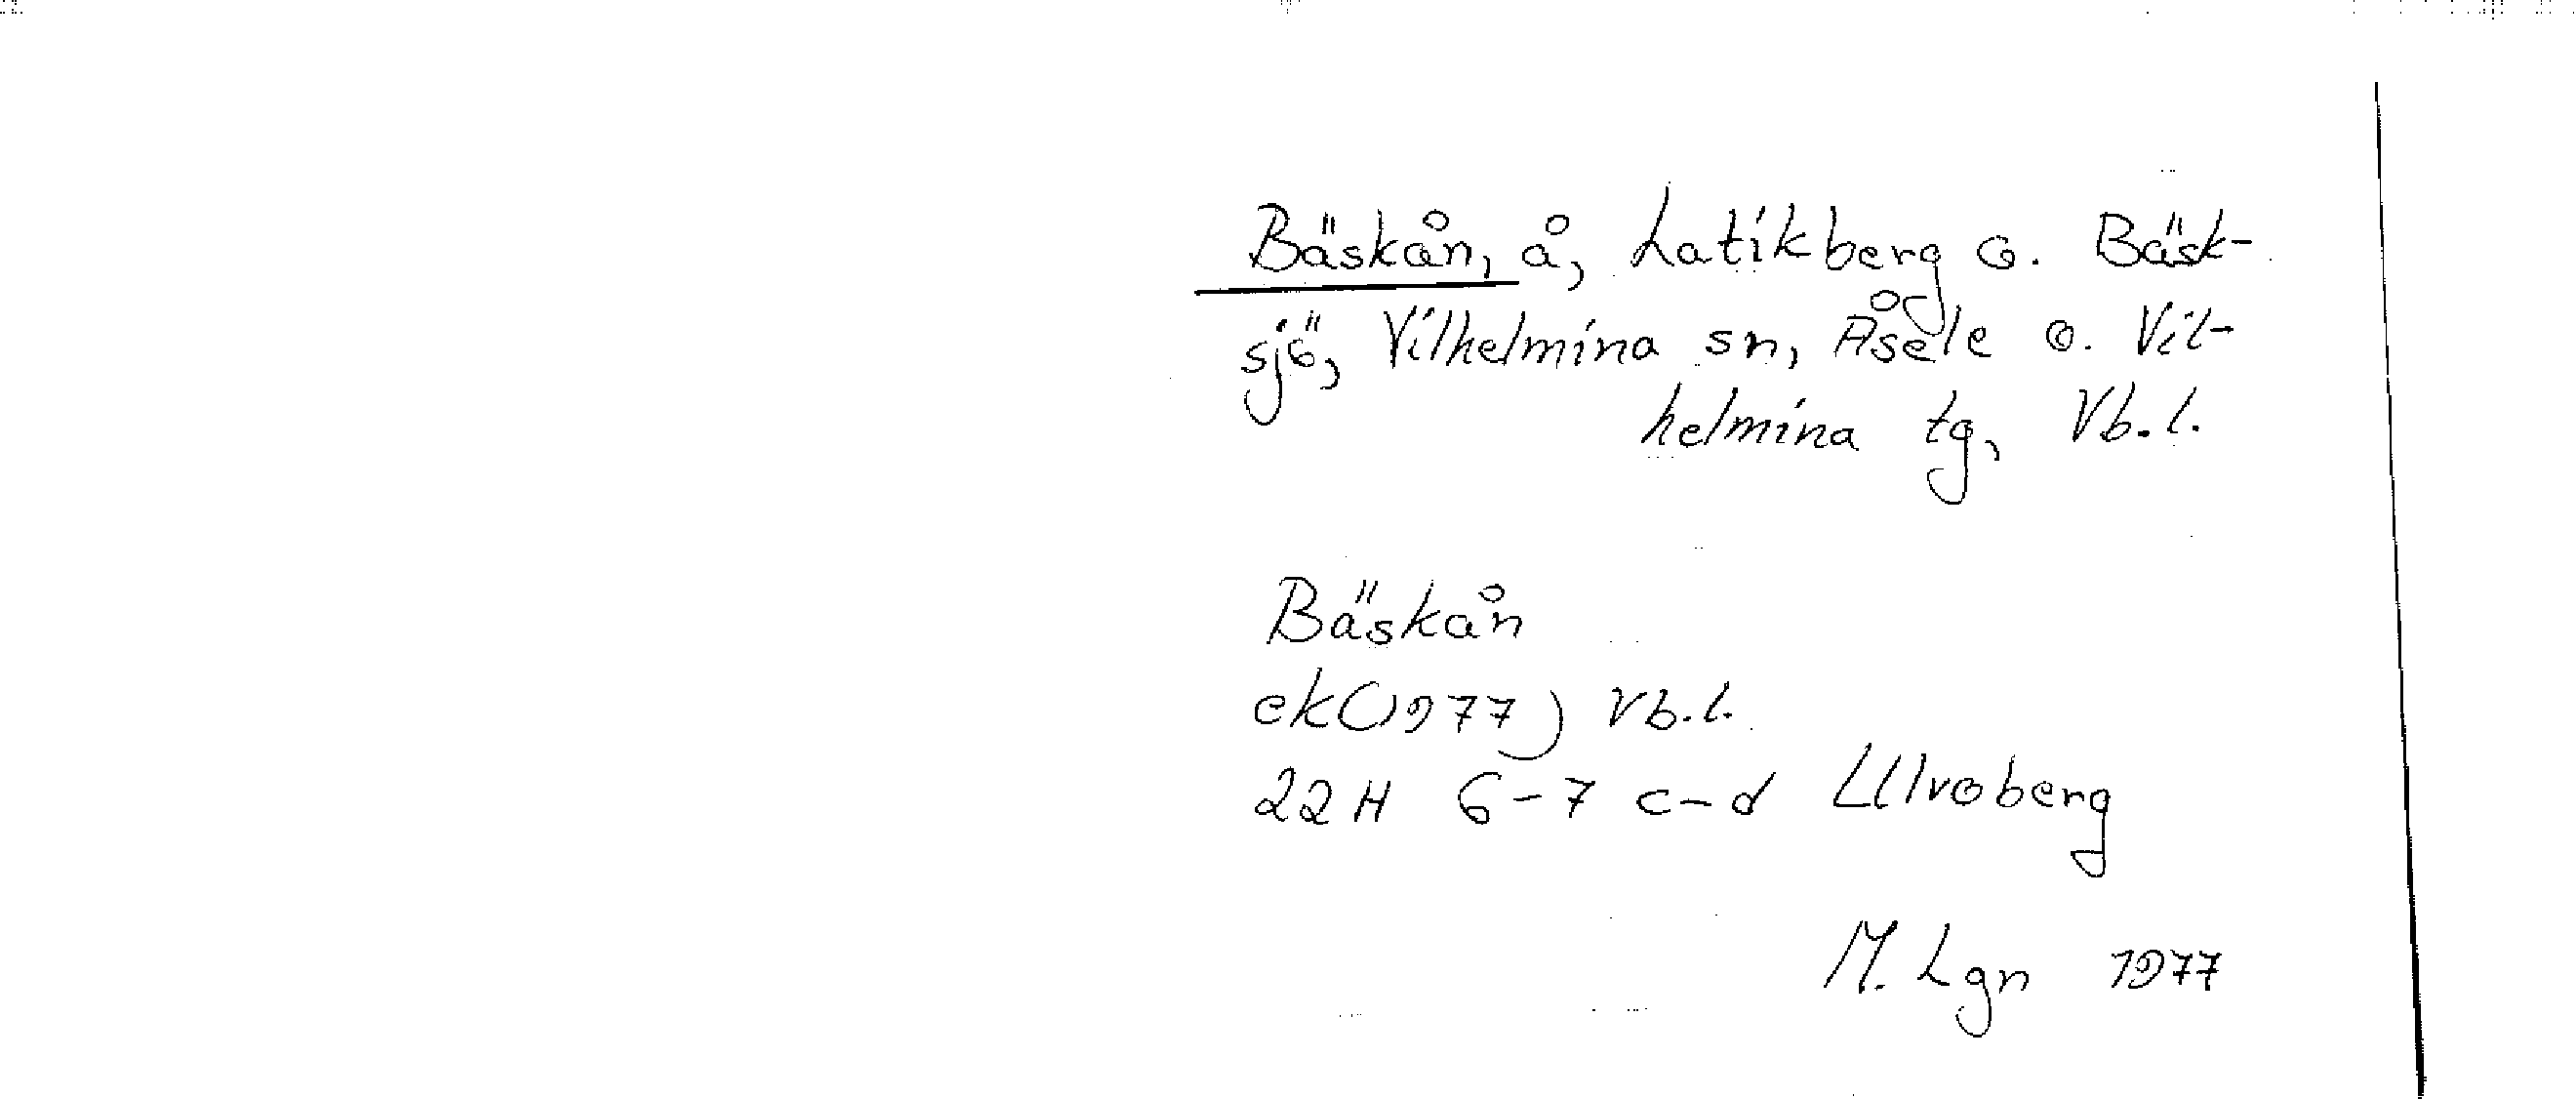 Bäskån, å, Latikberg o. Bäsk-
sjö, Vilhelmina sn, Åsele o. Vil-
helmina tg, Vb.l.
Bäskån
ek(1977) Vb.l.
22H 6-7 c-d Ulvoberg
M. Lgn 1977